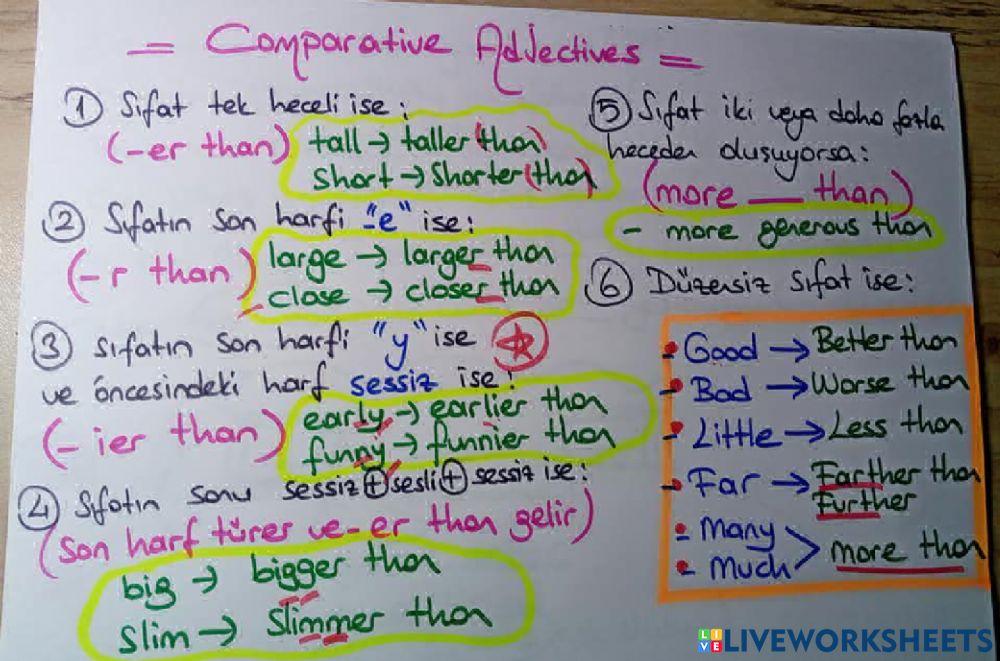 = Comparative Adjectives =
① Sıfat tek heceli ise:
(-er than)
tall → taller (than)
short → shorter (than)
② Sıfatın son harfi "-e" ise:
(-r than)
large → larger than
close → closer than
③ sıfatın son harfi "y" ise
ve öncesindeki harf sessiz ise:
(-ier than)
early → earlier than
funny → funnier than
④ Sıfatın sonu sessiz + sesli + sessiz ise:
(son harf türer ve -er than gelir)
big → bigger than
slim → slimmer than
⑤ Sıfat iki veya daha fazla
heceden oluşuyorsa:
(more __ than)
- more generous than
⑥ Düzensiz sıfat ise:
- Good → Better than
- Bad → Worse than
- Little → Less than
- Far → Farther than
Further
- Many
- Much > more than
LIVE LIVEWORKSHEETS